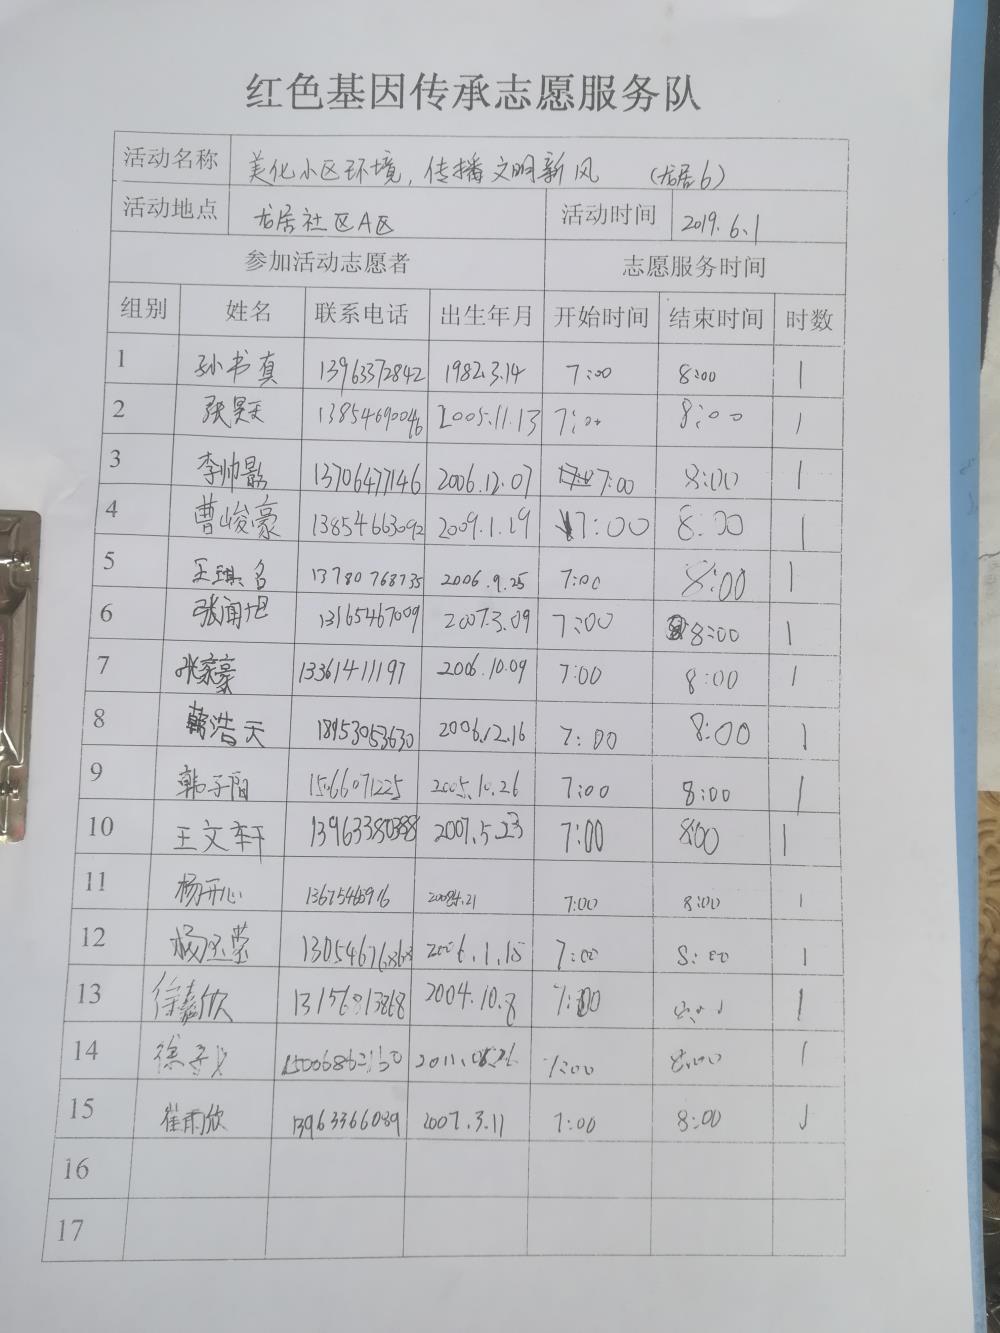 红色基因传承志愿服务队
活动名称 美化小区环境，传播文明新风 (龙居6)
活动地点 龙居社区A区 活动时间 2019.6.1
参加活动志愿者 志愿服务时间
组别 姓名 联系电话 出生年月 开始时间 结束时间 时数
1 孙书真 13963372842 1982.3.14 7:00 8:00 1
2 13854690046 2005.11.13 7:00 8:00 1
3 李帅影 13706477146 2006.12.07 7:00 8:00 1
4 曹峻豪 13854663092 2009.1.19 7:00 8:00 1
5 王琪名 13780768735 2006.9.25 7:00 8:00 1
6 13165467009 2007.3.09 7:00 8:00 1
7 张家豪 13361411197 2006.10.09 7:00 8:00 1
8 韩浩天 18953053630 2006.12.16 7:00 8:00 1
9 韩子阳 15066071225 2005.10.26 7:00 8:00 1
10 王文轩 2007.5.23 7:00 8:00 1
11 杨开心 7:00 8:00 1
12 2006.1.18 7:00 8:00 1
13 徐嘉欣 13156813868 2004.10.8 7:00 1
14 7:00 8:00 1
15 崔雨欣 13963366089 2007.3.11 7:00 8:00 1
16
17